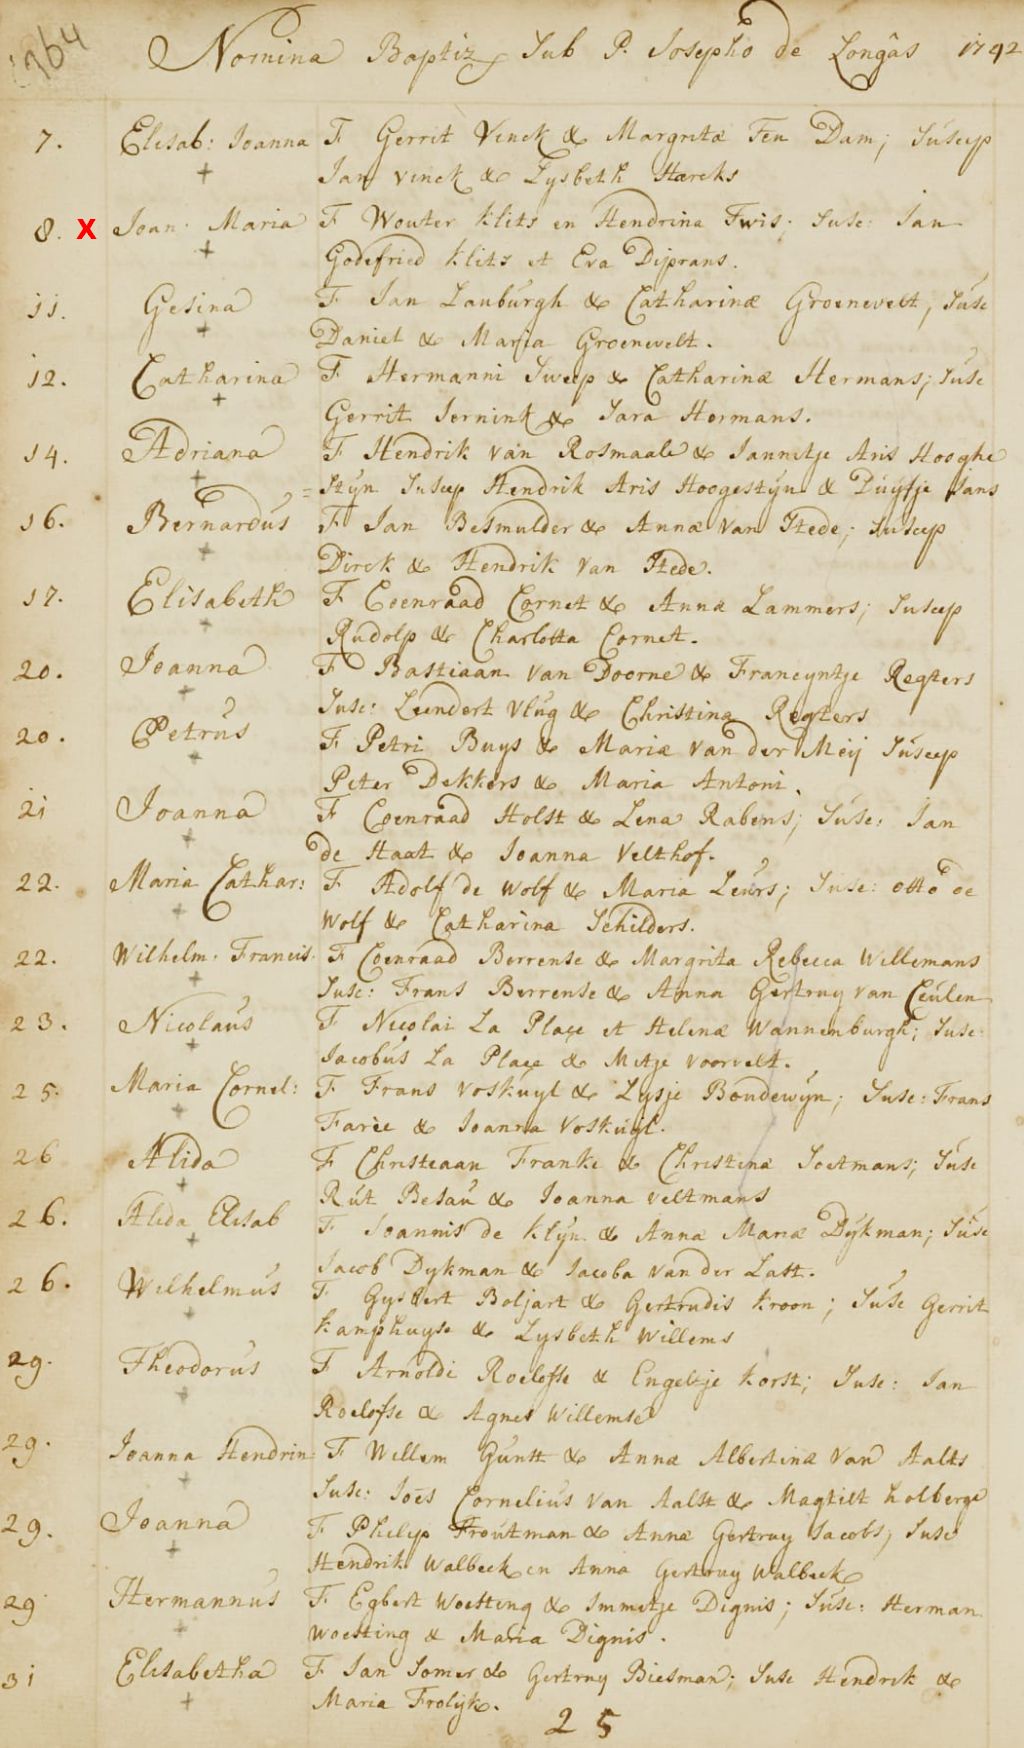 1764
Nomina Baptiz Sub P. Josepho de Longâs 1742
7. Elisab: Joanna F Gerrit Vinck & Margritæ Ten Dam; Suscep
Jan Vinck & Lysbeth Harcks
8. X Joan: Maria F Wouter Klits en Hendrina Twis; Susc: Jan
Godefried Klits et Eva Diprans.
11. Gesina F Jan Lauburgh & Catharinæ Groenevelt, Susc
Daniel & Maria Groenevelt.
12. Catharina F Hermanni Sweep & Catharinæ Hermans; Susc
Gerrit Sernink & Sara Hermans.
14. Adriana F Hendrik van Rosmaale & Jannetje Aris Hooghe
=styn Suscep Hendrik Aris Hoogestyn & Duyfje Jans
16. Bernardus F Jan Besmulder & Annæ Van Stede; Suscep
Dirck & Hendrik van Stede.
17. Elisabeth F Coenraad Cornet & Annæ Lammers; Suscep
Rudolp & Charlotta Cornet.
20. Joanna F Bastiaan van Doorne & Francyntje Regters
Susc: Leendert Vlug & Christina Regters
20. Petrus F Petri Buys & Mariæ van der Meij Suscep
Peter Dekkers & Maria Antoni.
21 Joanna F Coenraad Holst & Lena Rabens; Susc: Jan
de Haat & Joanna Velthof.
22. Maria Cathar: F Adolf de Wolf & Maria Leurs; Susc: Otto de
Wolf & Catharina Schilders.
22. Wilhelm: Francis. F Coenraad Berrense & Margrita Rebecca Willemans
Susc: Frans Berrense & Anna Gertruy van Ceulen
23. Nicolaus F Nicolai La Place et Helenæ Wannenburgh; Susc:
Jacobus La Place & Metje Voorvelt.
25. Maria Cornel: F Frans Voskuyl & Lysje Boudewyn; Susc: Frans
Farèe & Joanna Voskuyl.
26 Alida F Christiaan Franke & Christinæ Soetmans; Susc
Rut Besau & Joanna Veltmans
26. Alida Elisab F Joannis de Klyn & Annæ Mariæ Dykman; Susc
Jacob Dykman & Jacoba van der Latt.
26. Wilhelmus F Gysbert Boljart & Gertrudis Kroon; Susc Gerrit
Kamphuyse & Lysbeth Willems
29. Theodorus F Arnoldi Roelofse & Engeltje Korst; Susc: Jan
Roelofse & Agnes Willemse
29. Joanna Hendrin: F Willem Guntt & Annæ Albertinæ Van Aalts
Susc: Joës Cornelius van Aalst & Magtilt Holberge
29. Joanna F Philip Troutman & Annæ Gertruy Jacobs; Susc
Hendrik Walbeek en Anna Gertruy Walbeek
29 Hermannus F Egbert Woesting & Immetje Dignis; Susc: Herman
Woesting & Maria Dignis.
31 Elisabetha F Jan Somer & Gertruy Biesman; Susc Hendrik &
Maria Frolijk.
25